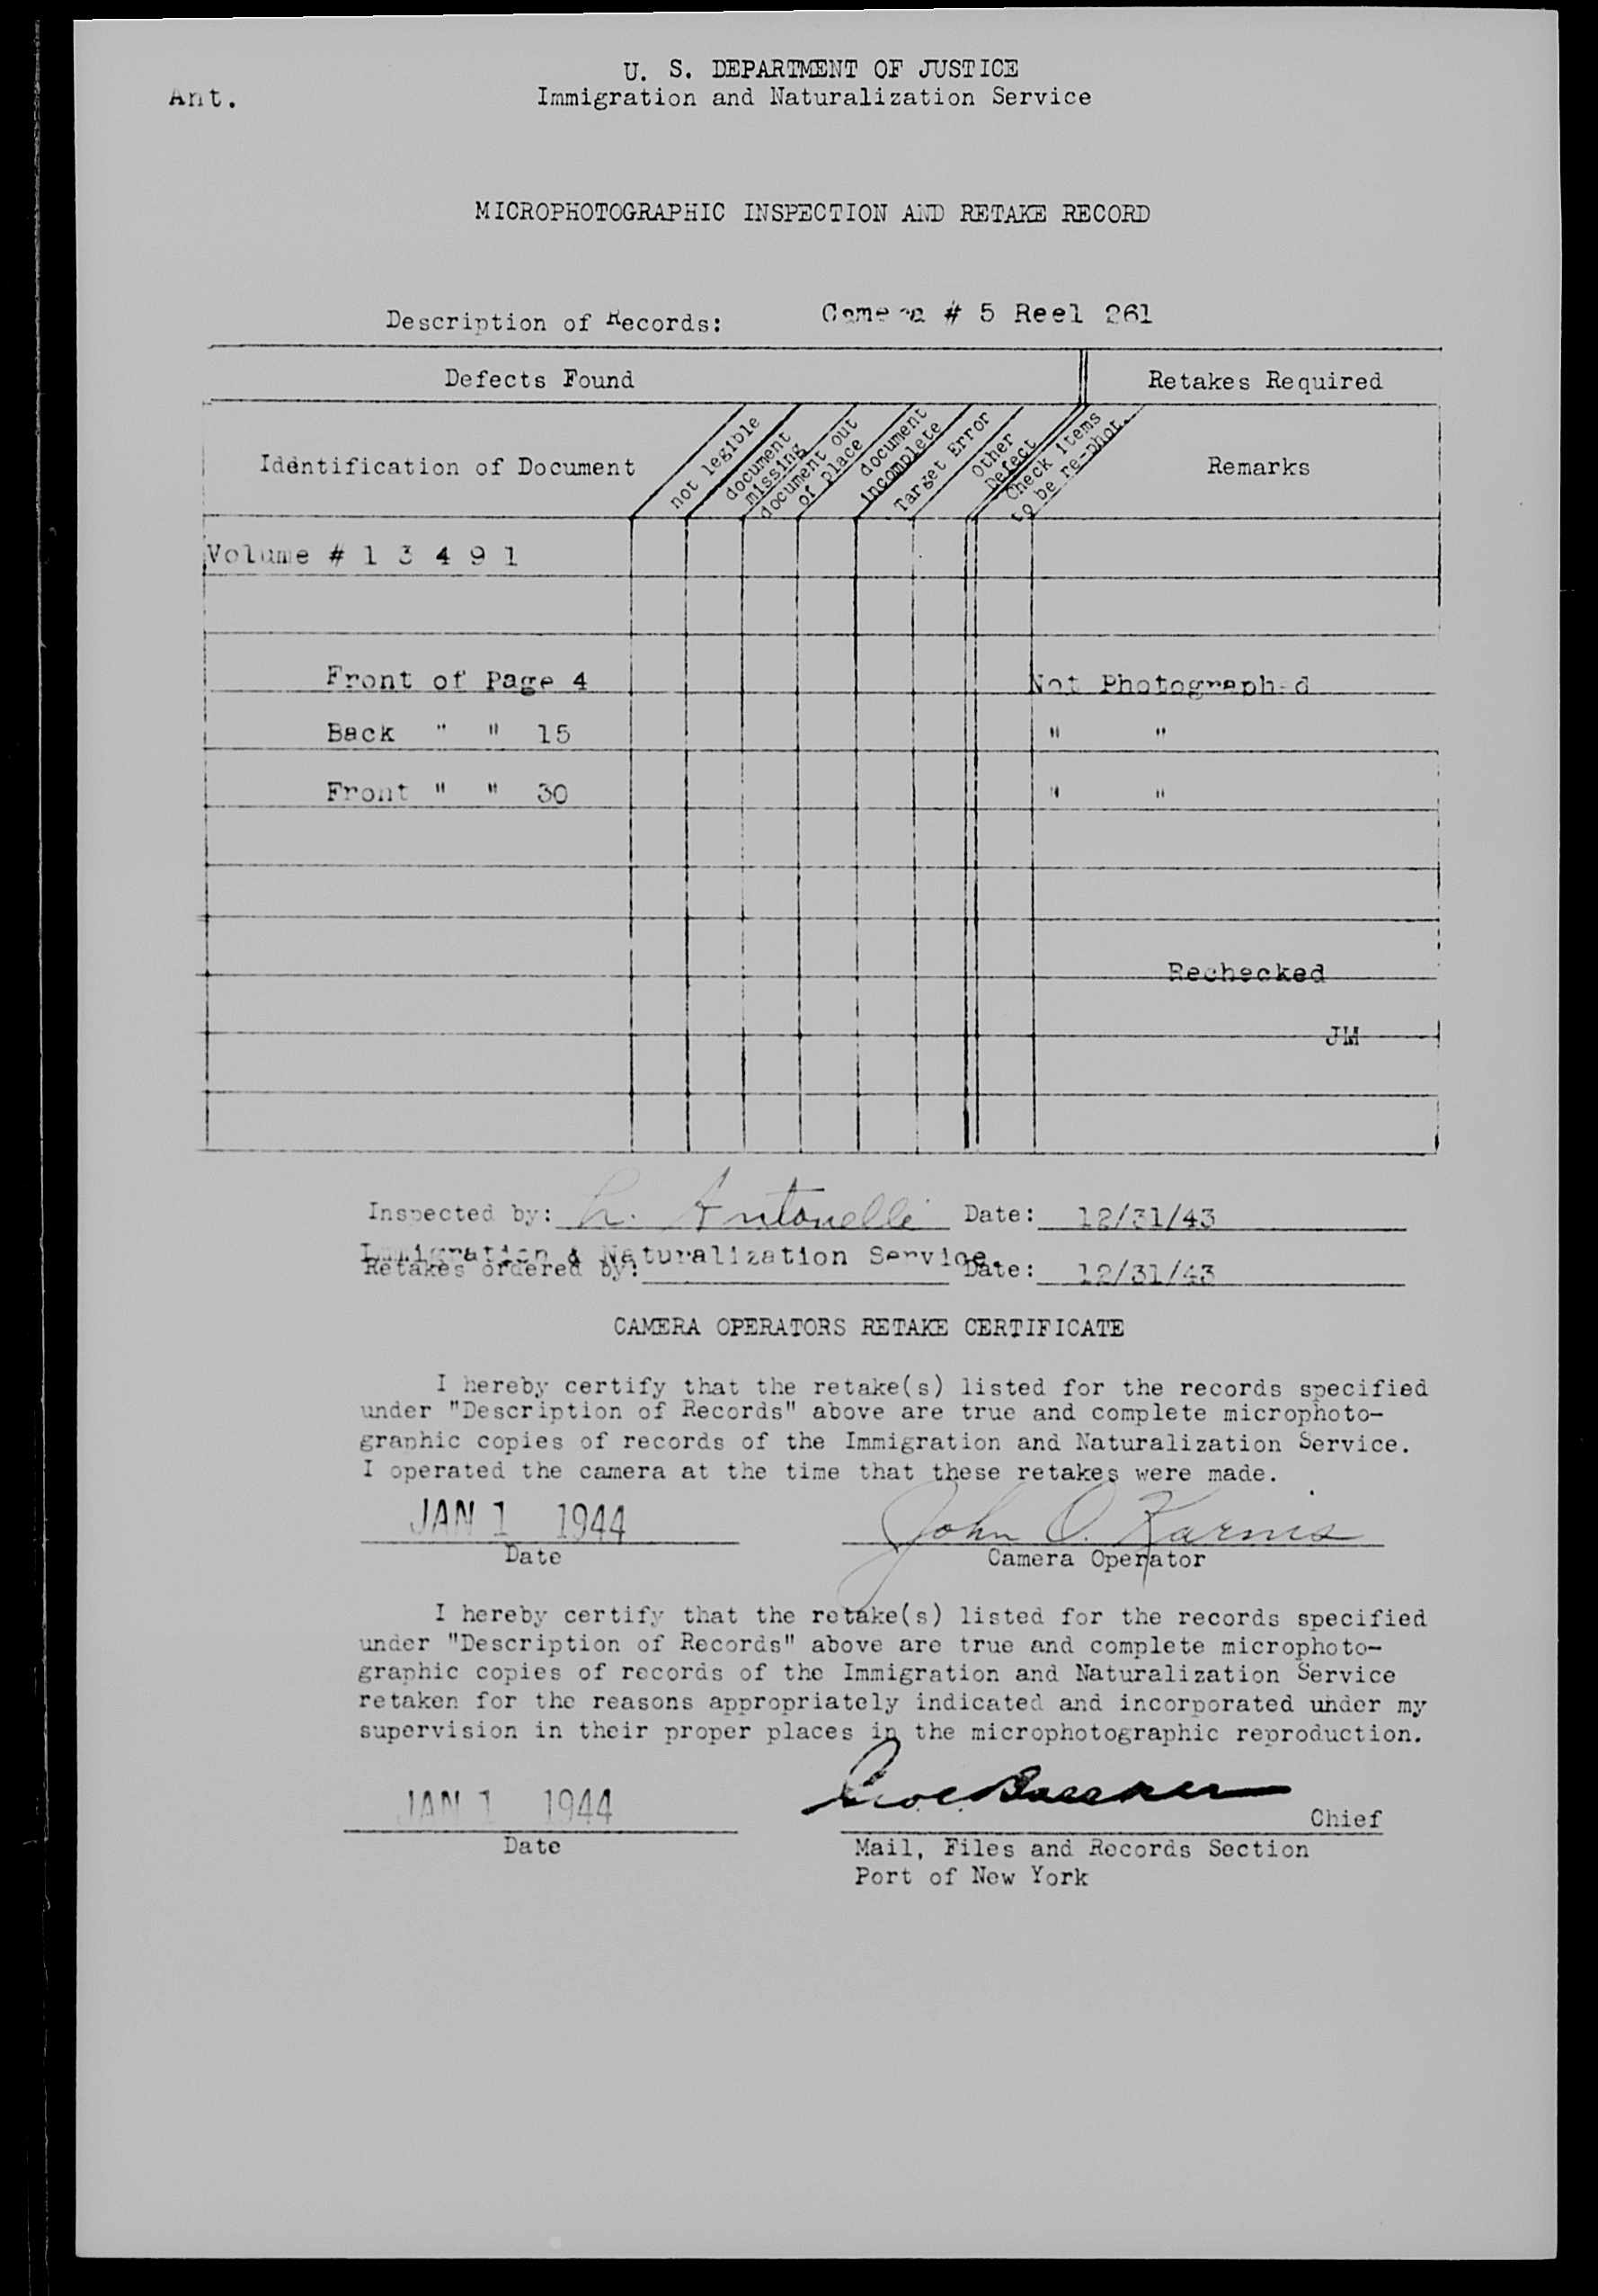 U. S. DEPARTMENT OF JUSTICE
Ant.
Immigration and Naturalization Service
MICROPHOTOGRAPHIC INSPECTION AND RETAKE RECORD
Description of Records: Camera # 5 Reel 261
Defects Found
Retakes Required
Identification of Document
not legible
document
missing
document out
of place
document
incomplete
Target Error
Other
Defect
Check items
to be re-phot.
Remarks
Volume # 1 3 4 9 1
Front of Page 4 Not Photographed
Back " " 15 " "
Front " " 30 " "
Rechecked
JM
Inspected by: L. Antonelli Date: 12/31/43
Immigration & Naturalization Service.
Retakes ordered by: Date: 12/31/43
CAMERA OPERATORS RETAKE CERTIFICATE
I hereby certify that the retake(s) listed for the records specified
under "Description of Records" above are true and complete microphoto-
graphic copies of records of the Immigration and Naturalization Service.
I operated the camera at the time that these retakes were made.
JAN 1 1944 John O. Karnes
Date Camera Operator
I hereby certify that the retake(s) listed for the records specified
under "Description of Records" above are true and complete microphoto-
graphic copies of records of the Immigration and Naturalization Service
retaken for the reasons appropriately indicated and incorporated under my
supervision in their proper places in the microphotographic reproduction.
JAN 1 1944
Chief
Date
Mail, Files and Records Section
Port of New York